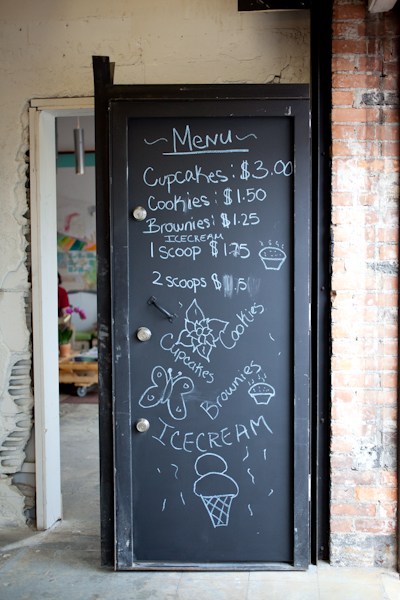 ~ Menu ~
Cupcakes: $3.00
Cookies: $1.50
Brownies: $1.25
ICECREAM
1 scoop $1.75
2 scoops $
Cupcakes
Cookies
Brownies
ICECREAM